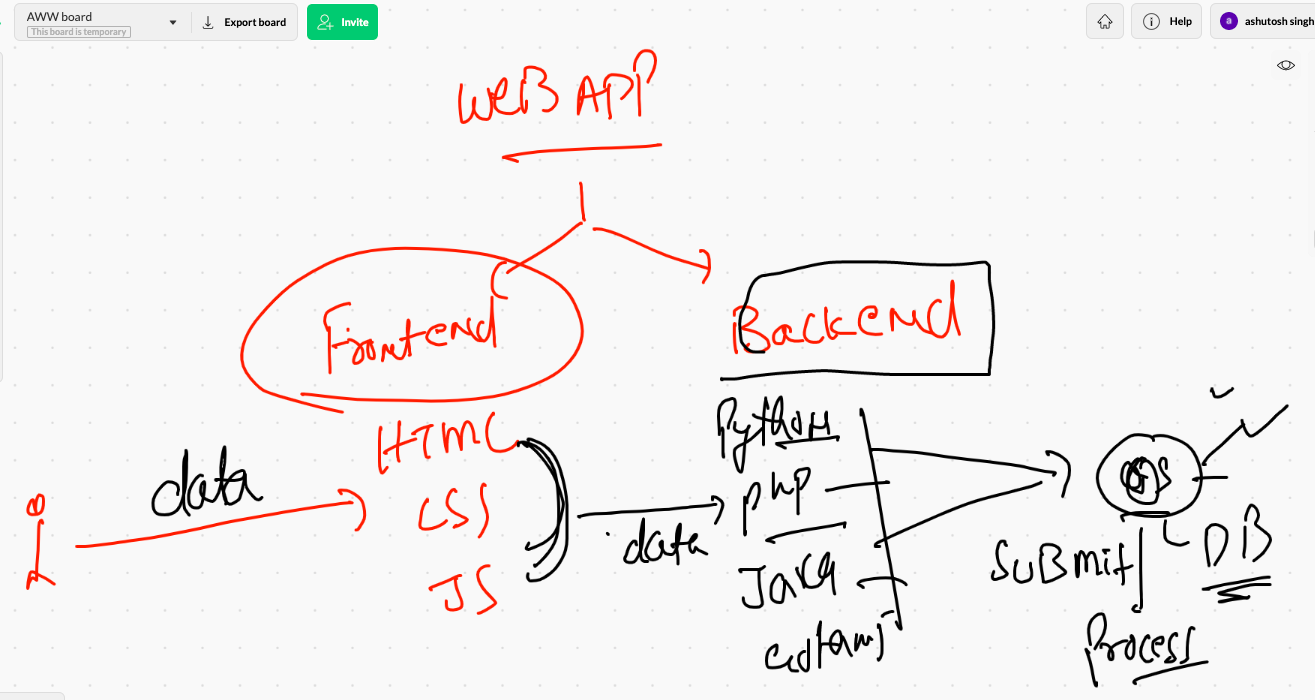 AWW board
This board is temporary
Export board
Invite
Help
a
ashutosh singh
WEB APP
Frontend
Backend
HTML
CSS
JS
data
data
Python
PHP
Java
OS
DB
SUBmit
Process